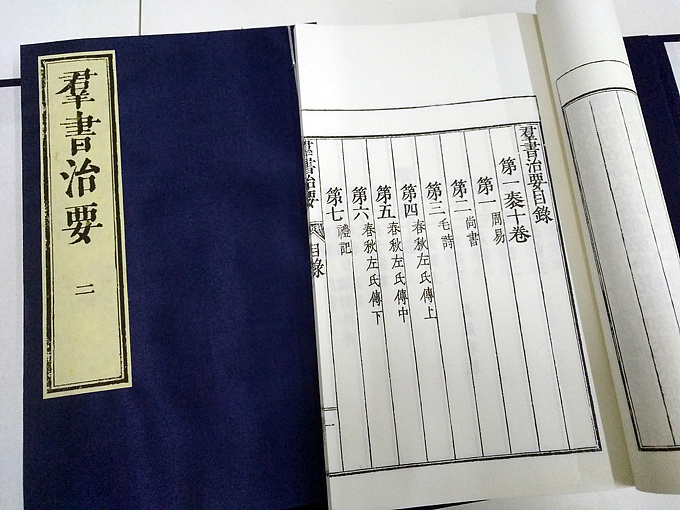 羣書治要
二
羣書治要目錄
第一袠十卷
第一 周易
第二 尚書
第三 毛詩
第四 春秋左氏傳上
第五 春秋左氏傳中
第六 春秋左氏傳下
第七 禮記
羣書治要 目錄 一